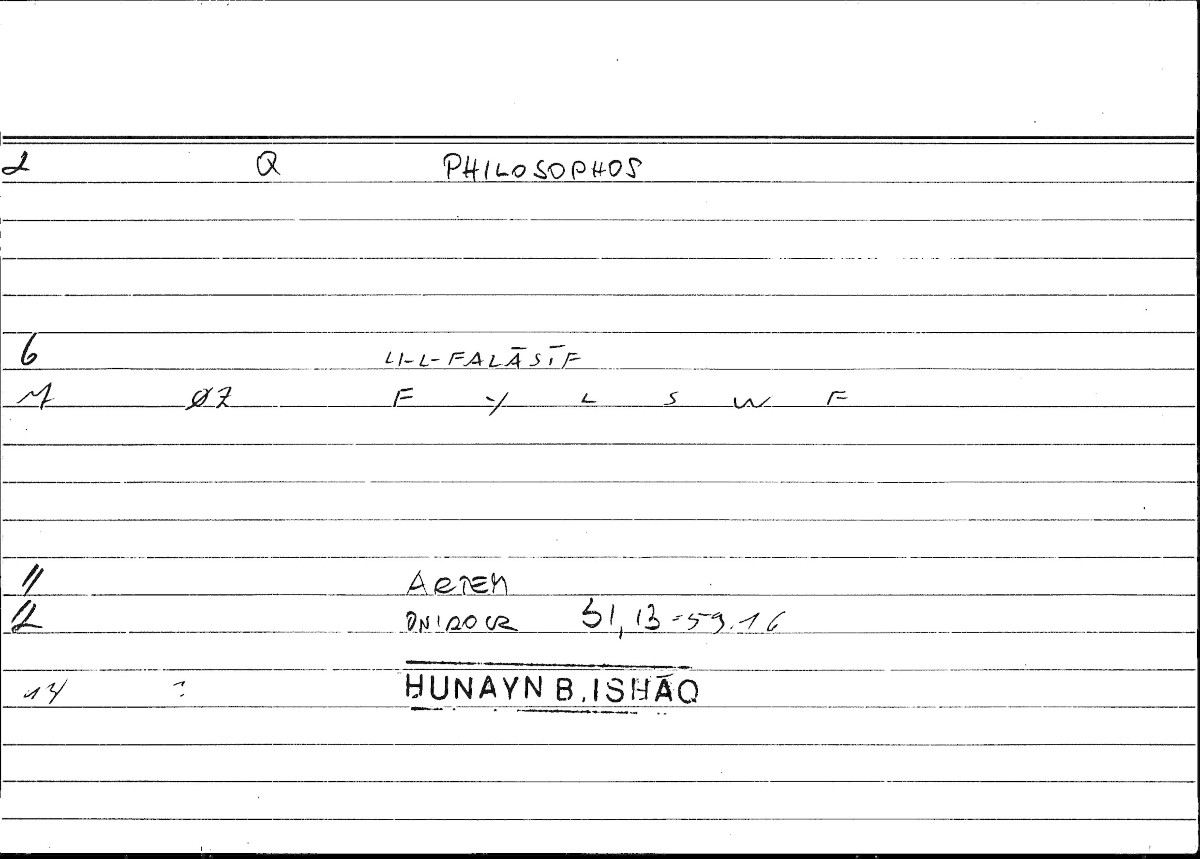 2 Q PHILOSOPHOS
6 LI-L-FALĀSĪF
07 F Y L S W F
11 ARTEM
12 ONIROCR 51,13 = 59.16
14 ? HUNAYN B. ISHĀQ